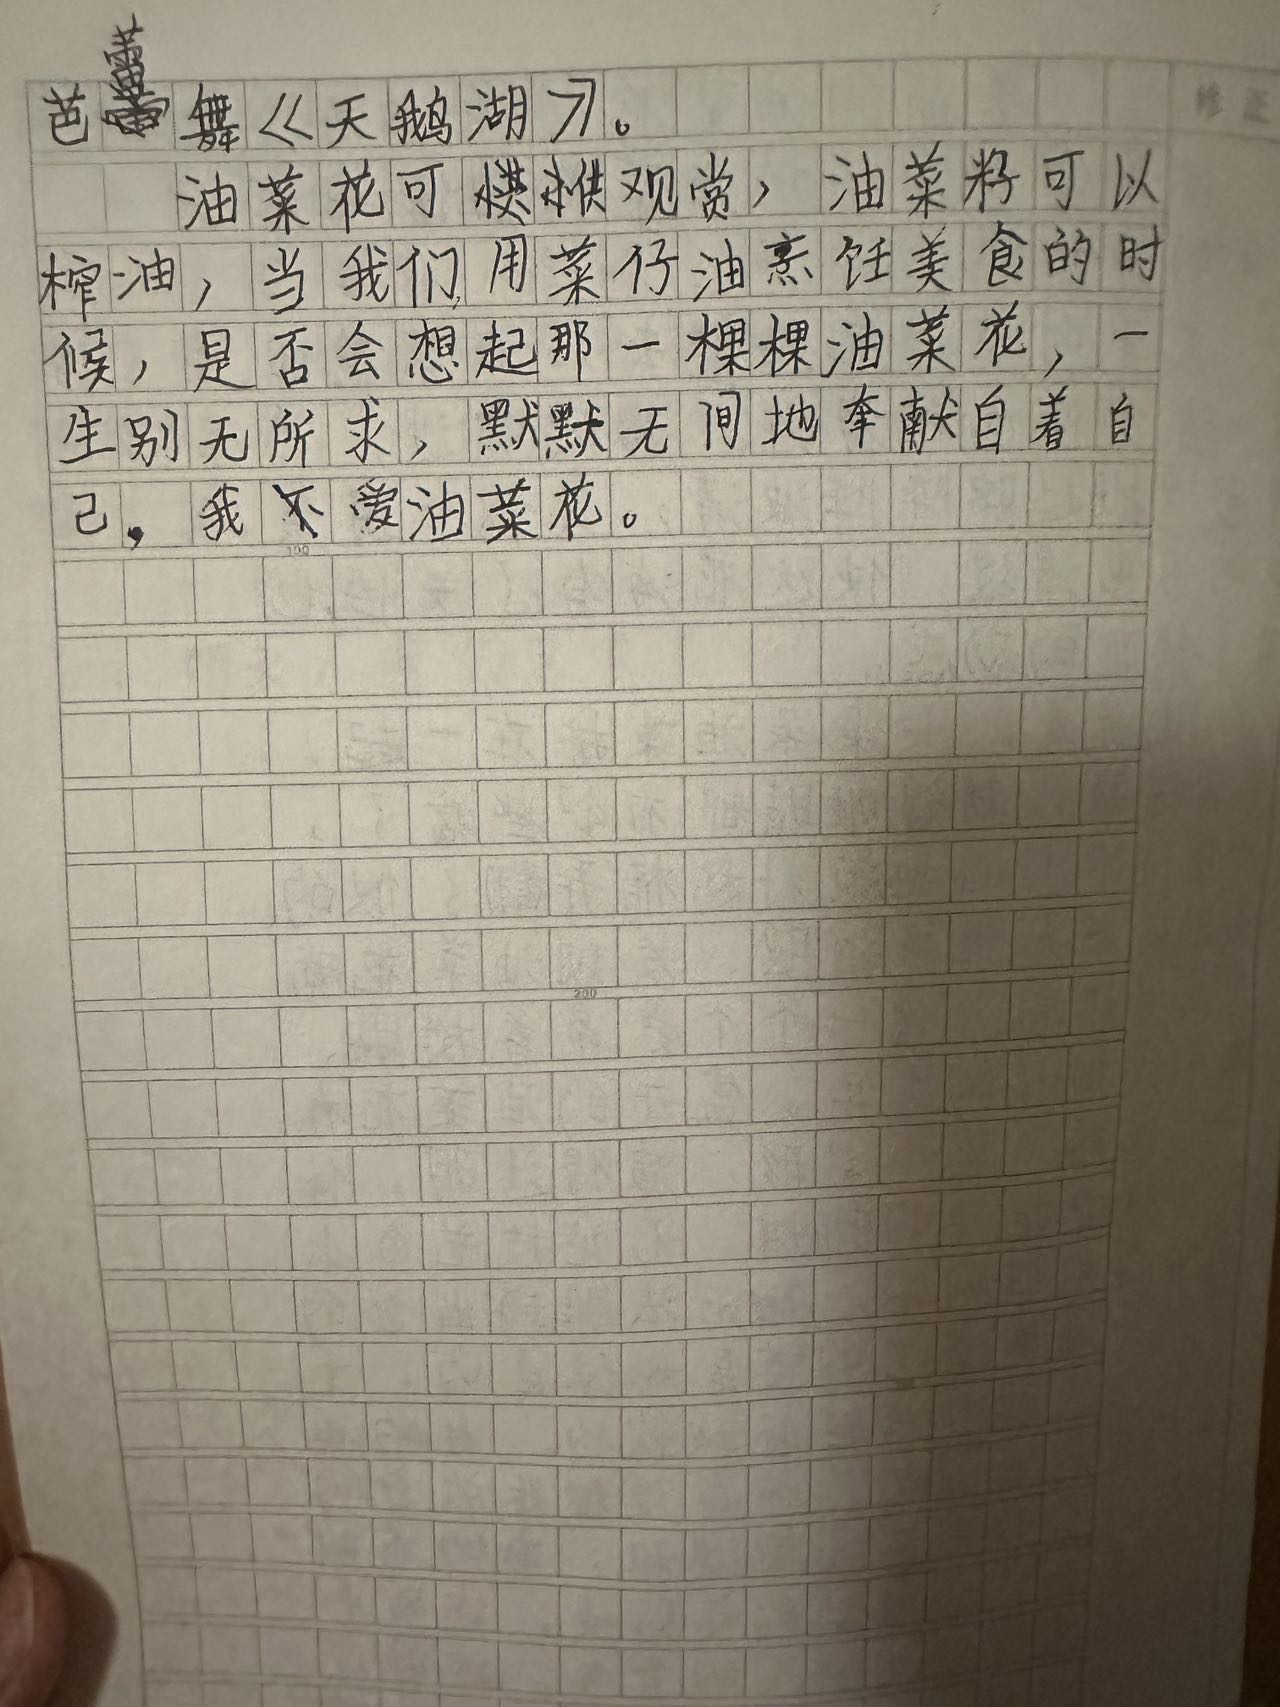 芭蕾舞《天鹅湖》。
油菜花可供观赏，油菜籽可以
榨油，当我们用菜仔油烹饪美食的时
候，是否会想起那一棵棵油菜花，一
生别无所求，默默无间地奉献自着自
己，我爱油菜花。
100
200